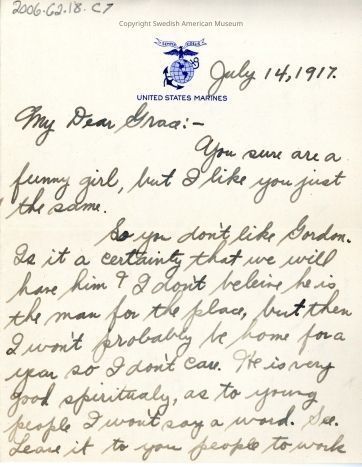 2006.62.18.C7
Copyright Swedish American Museum
SEMPER FIDELIS
July 14, 1917.
UNITED STATES MARINES
My Dear Grace:-
You sure are a
funny girl, but I like you just
the same.
So you don't like Gordon.
Is it a certainty that we will
have him? I don't beleive he is
the man for the place, but then
I won't probably be home for a
year so I don't care. He is very
good spiritualy, as to young
people I won't say a word. See.
Leave it to you people to work